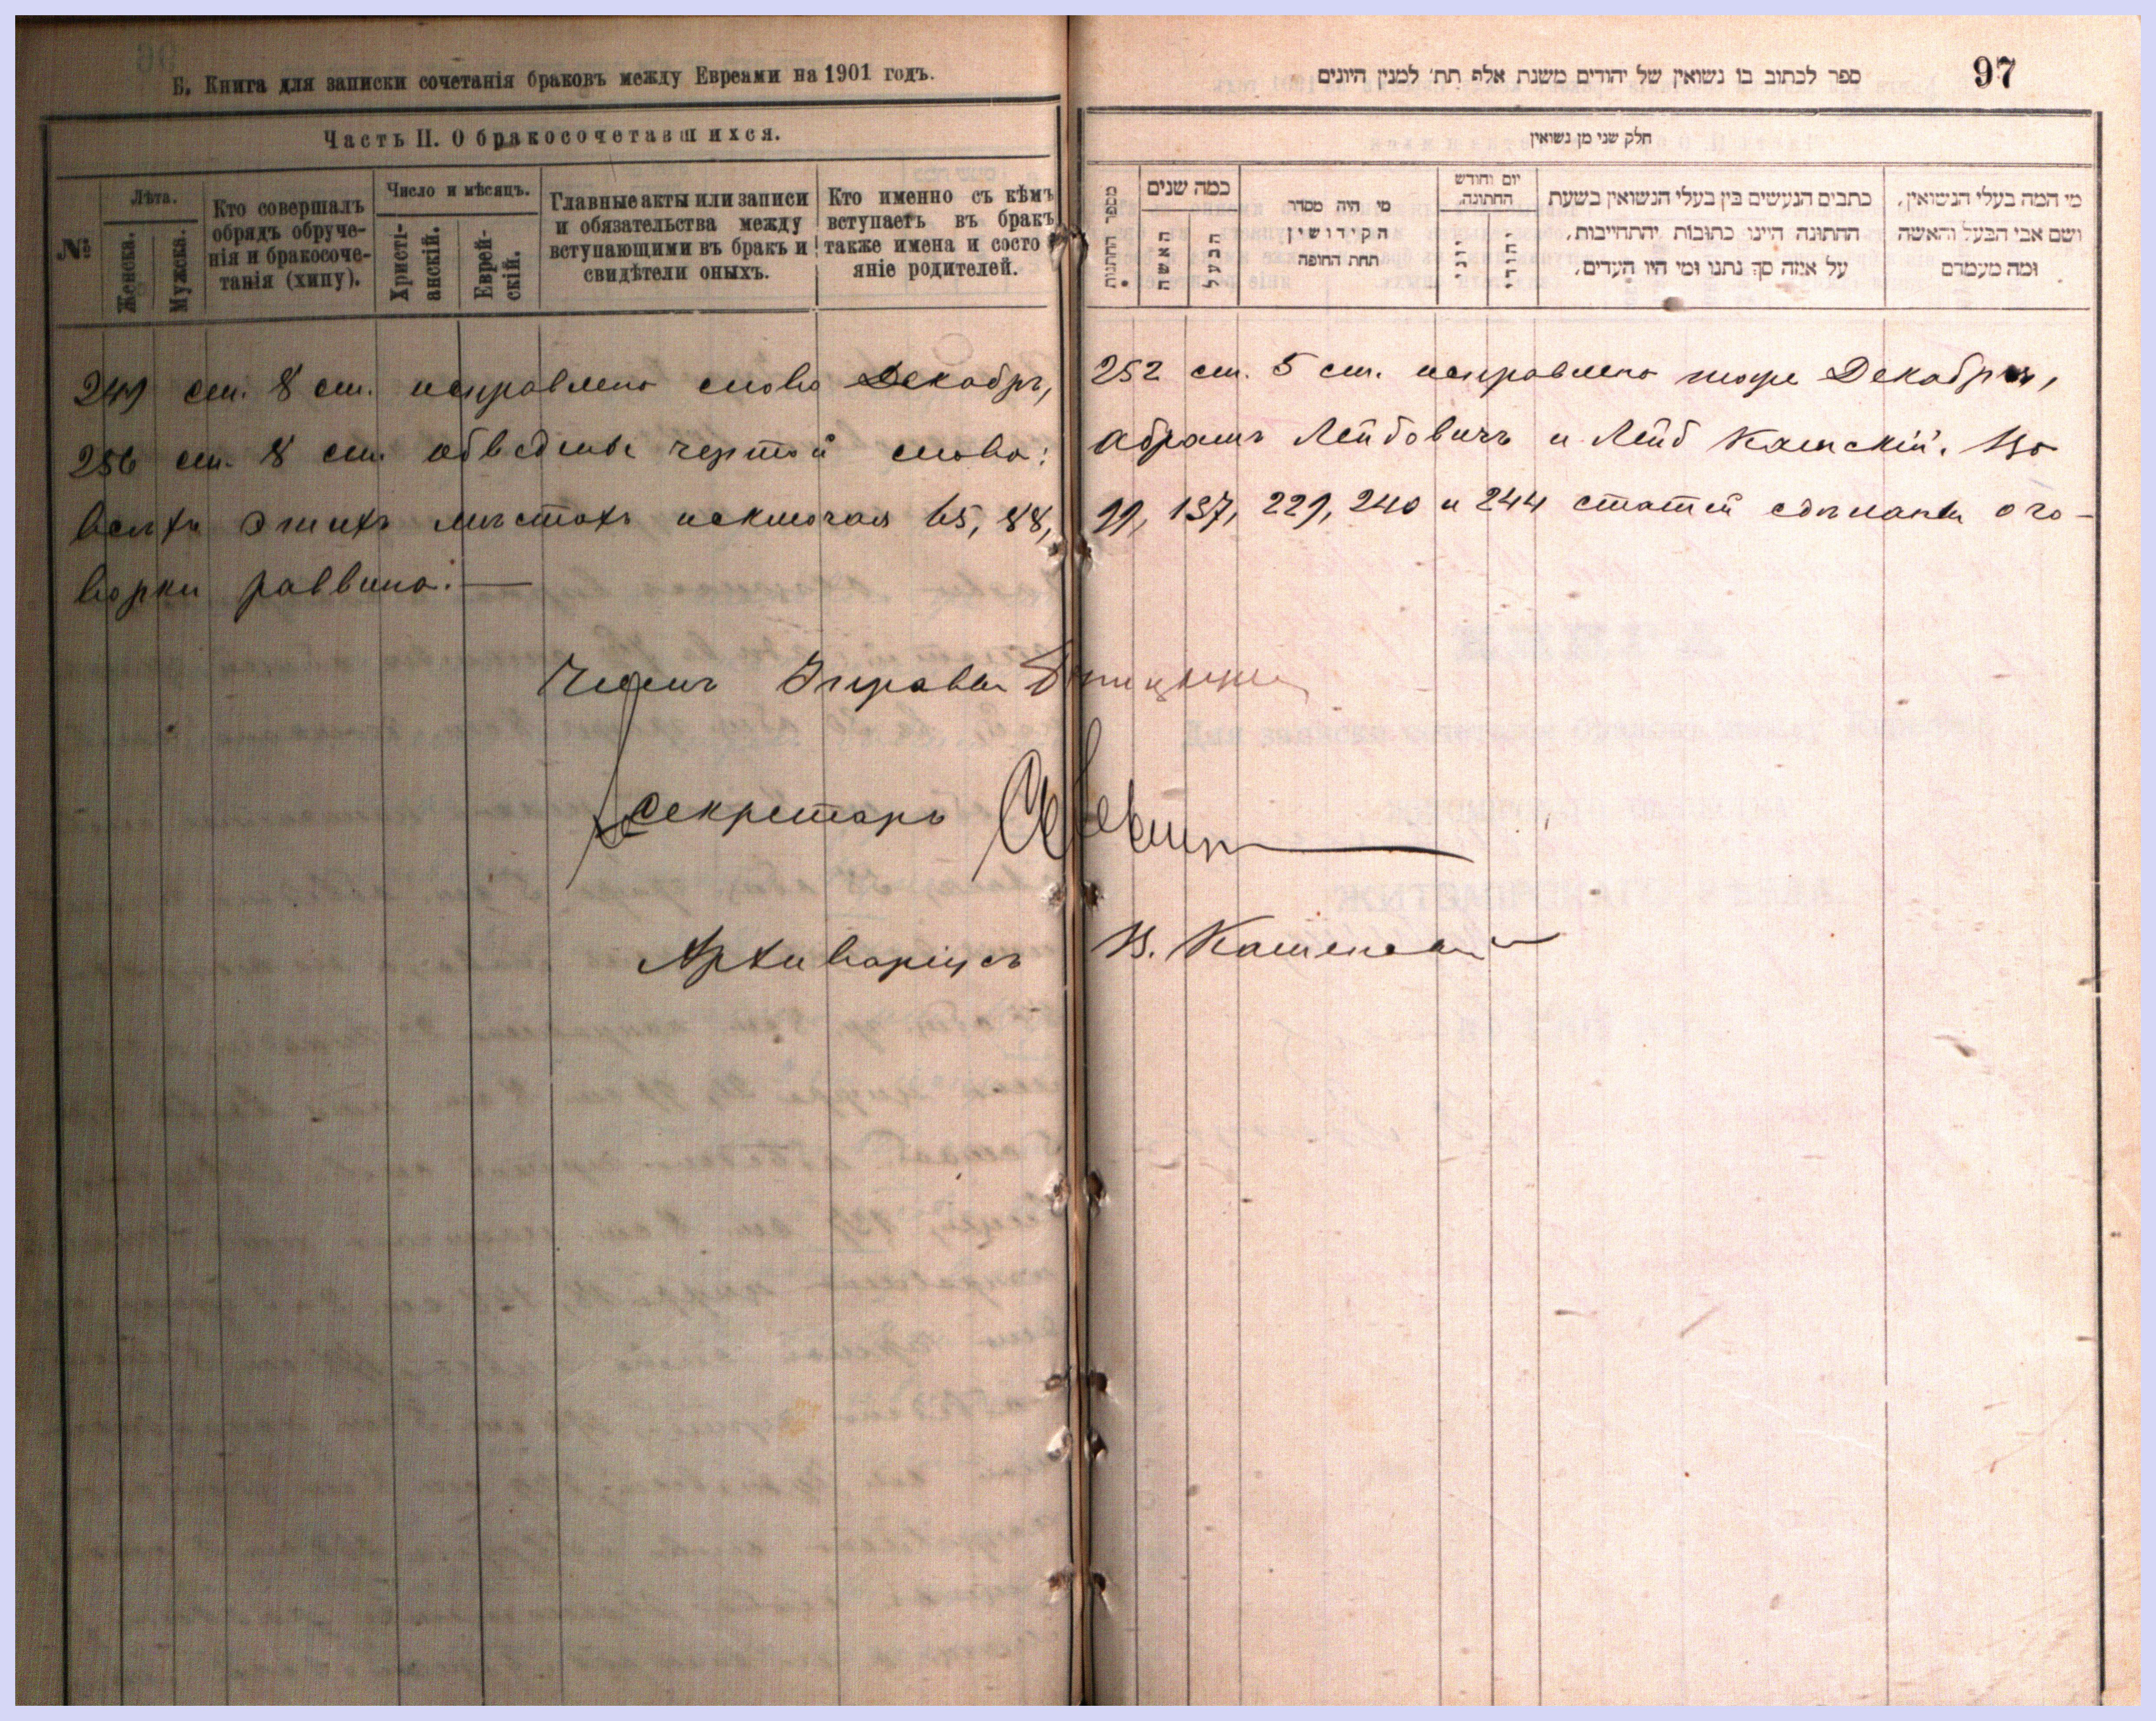 Б. Книга для записки сочетанія браковъ между Евреами на 1901 годъ.
Часть II. О бракосочетавшихся.
№
Лѣта.
Женска.
Мужска.
Кто совершалъ
обрядъ обруче-
нія и бракосоче-
танія (хипу).
Число и мѣсяцъ.
Христі-
анскій.
Еврей-
скій.
Главные акты или записи
и обязательства между
вступающими въ бракъ и
свидѣтели оныхъ.
Кто именно съ кѣмъ
вступаетъ въ бракъ
также имена и состо
яніе родителей.
ספר לכתוב בו נשואין של יהודים משנת אלף תת׳ למנין היונים
97
חלק שני מן נשואין
מספר החתנות
כמה שנים
האשה
הבעל
מי היה מסדר
הקידושין
תחת החופה
יום וחודש
החתונה.
יוני
יהודי
כתבים הנעשים בין בעלי הנשואין בשעת
החתונה היינו כתובות יהתחייבות,
על אמה סך נתנו ומי היו העדים.
מי המה בעלי הנשואין,
ושם אבי הבעל והאשה
ומה מעמדם
249 ст. 8 ст. исправлено слово Декабрь, 252 ст. 5 ст. исправлено тоже Декабря,
256 ст. 8 ст. обведены чертой слова: Абрамъ Лейбовичъ и Лейб Каmскій. Во
всѣхъ этихъ мѣстахъ исключая 65, 88, 99, 137, 229, 240 и 244 статей сдѣланы ого-
ворки раввина.—
Членъ Управы
Секретарь
Архиваріусъ В.